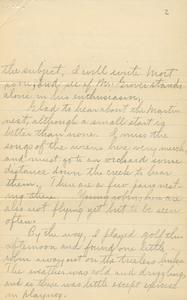 2
the subject, I will write Mort
soon, and see if Mr. Grover stands
alone in his enthusiasm.
Glad to hear about the Martin
nest, although a small start is
better than none. I miss the
songs of the wrens here very much
and must go to an orchard some
distance down the creek to hear
them. There are a few jays nest-
ing there. Young robins here are
also not flying yet but to be seen
often.
By the way, I played golf this
afternoon and found one little
robin away out on the treeless links.
The weather was cold and drizzling
and so there was little except exercise
in playing.